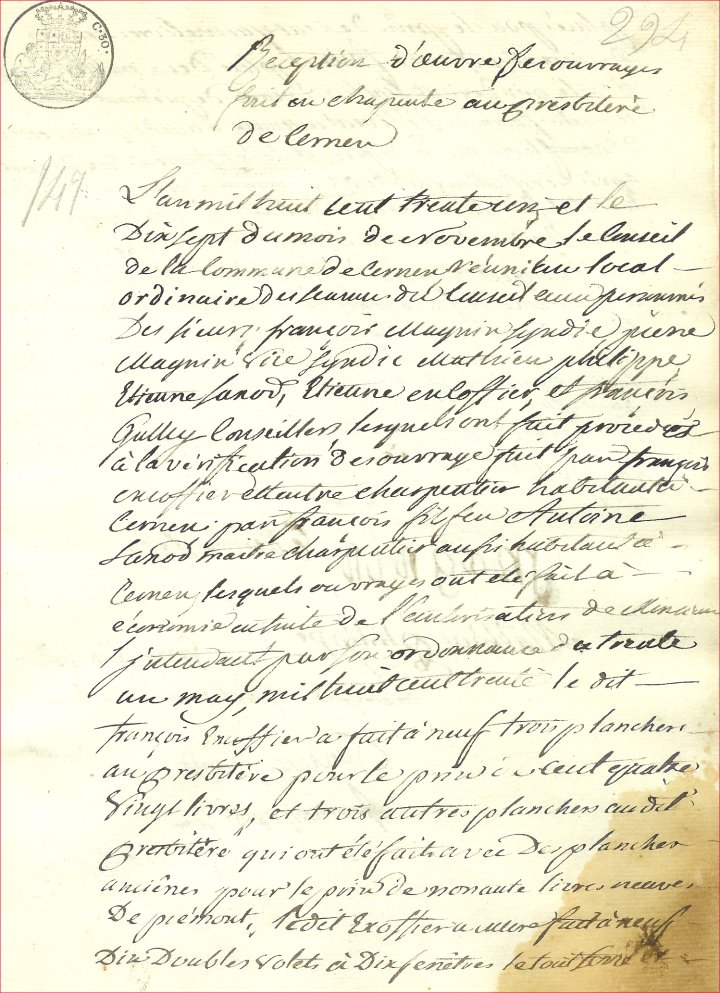 C.50.
294
Reception d'œuvre des ouvrages
fait en charpente au presbitère
de Cernex
147
L'an mil huit cent trente un et le
Dix sept du mois de Novembre, le Conseil
de la Commune de Cernex réuni au local
ordinaire des séances du Conseil aux personnes
Des sieurs françois Magnin Syndic pierre
Magnin Vice Syndic Mathieu philippe
Etienne Sanod, Etienne Excoffier, et françois
Gulley Conseillers, lesquels ont fait procéder
à la vérification Des ouvrage fait par françois
excoffier charpentier habitant à
Cernex par françois fil feu Antoine
Sanod maitre charpentier aussi habitant à
Cernex, lesquels ouvrages ont été fait à
économie ensuite de l'autorisation de
l'jntendant par son ordonnance du trente
un may, mil huit cent trente le dit
françois Excoffier a fait à neuf trois plancher
au presbitère pour le prix de cent quatre
Vingt livres, et trois autres planchers au dit
Presbitère qui ont été faits avec Des plancher
anciènes pour le prix de nonante livres neuves
De piémont, ledit Excoffier a encore fait à neuf
Dix Doubles Volets à Dix fenêtres le tout